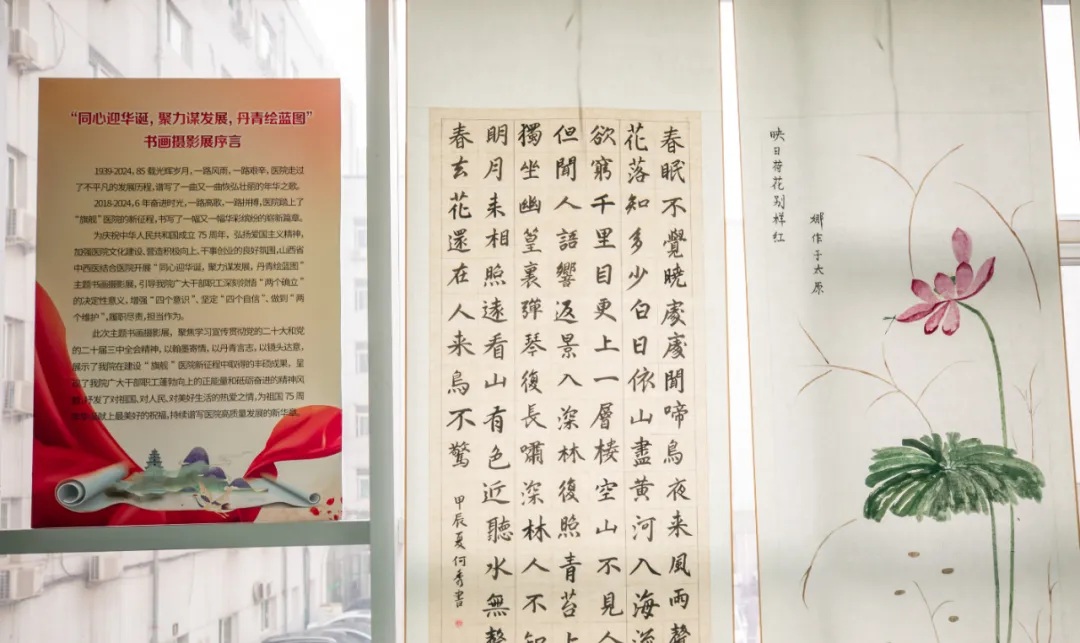 “同心迎华诞，聚力谋发展，丹青绘蓝图”
书画摄影展序言
1939-2024，85载光辉岁月，一路风雨，一路艰辛，医院走过
了不平凡的发展历程，谱写了一曲又一曲恢弘壮丽的年华之歌。
2018-2024，6年奋进时光，一路高歌，一路拼搏，医院踏上了
“旗舰”医院的新征程，书写了一幅又一幅华彩缤纷的崭新篇章。
为庆祝中华人民共和国成立75周年，弘扬爱国主义精神，
加强医院文化建设，营造积极向上、干事创业的良好氛围，山西省
中西医结合医院开展“同心迎华诞，聚力谋发展，丹青绘蓝图”
主题书画摄影展，引导我院广大干部职工深刻领悟“两个确立”
的决定性意义，增强“四个意识”、坚定“四个自信”、做到“两
个维护”，履职尽责，担当作为。
此次主题书画摄影展，聚焦学习宣传贯彻党的二十大和党
的二十届三中全会精神，以翰墨寄情，以丹青言志，以镜头达意，
展示了我院在建设“旗舰”医院新征程中取得的丰硕成果，呈
现了我院广大干部职工蓬勃向上的正能量和砥砺奋进的精神风
抒发了对祖国、对人民、对美好生活的热爱之情，为祖国75周
献上最美好的祝福，持续谱写医院高质量发展的新华章。
春眠不覺曉處處聞啼鳥夜来風雨聲
花落知多少白日依山盡黄河入海流
欲窮千里目更上一層楼空山不見人
但聞人語響返景入深林復照青苔上
獨坐幽篁裏彈琴復長嘯深林人不知
明月来相照遠看山有色近聽水無聲
春去花還在人来鳥不驚
甲辰夏何秀書
映日荷花别样红
娜作于太原